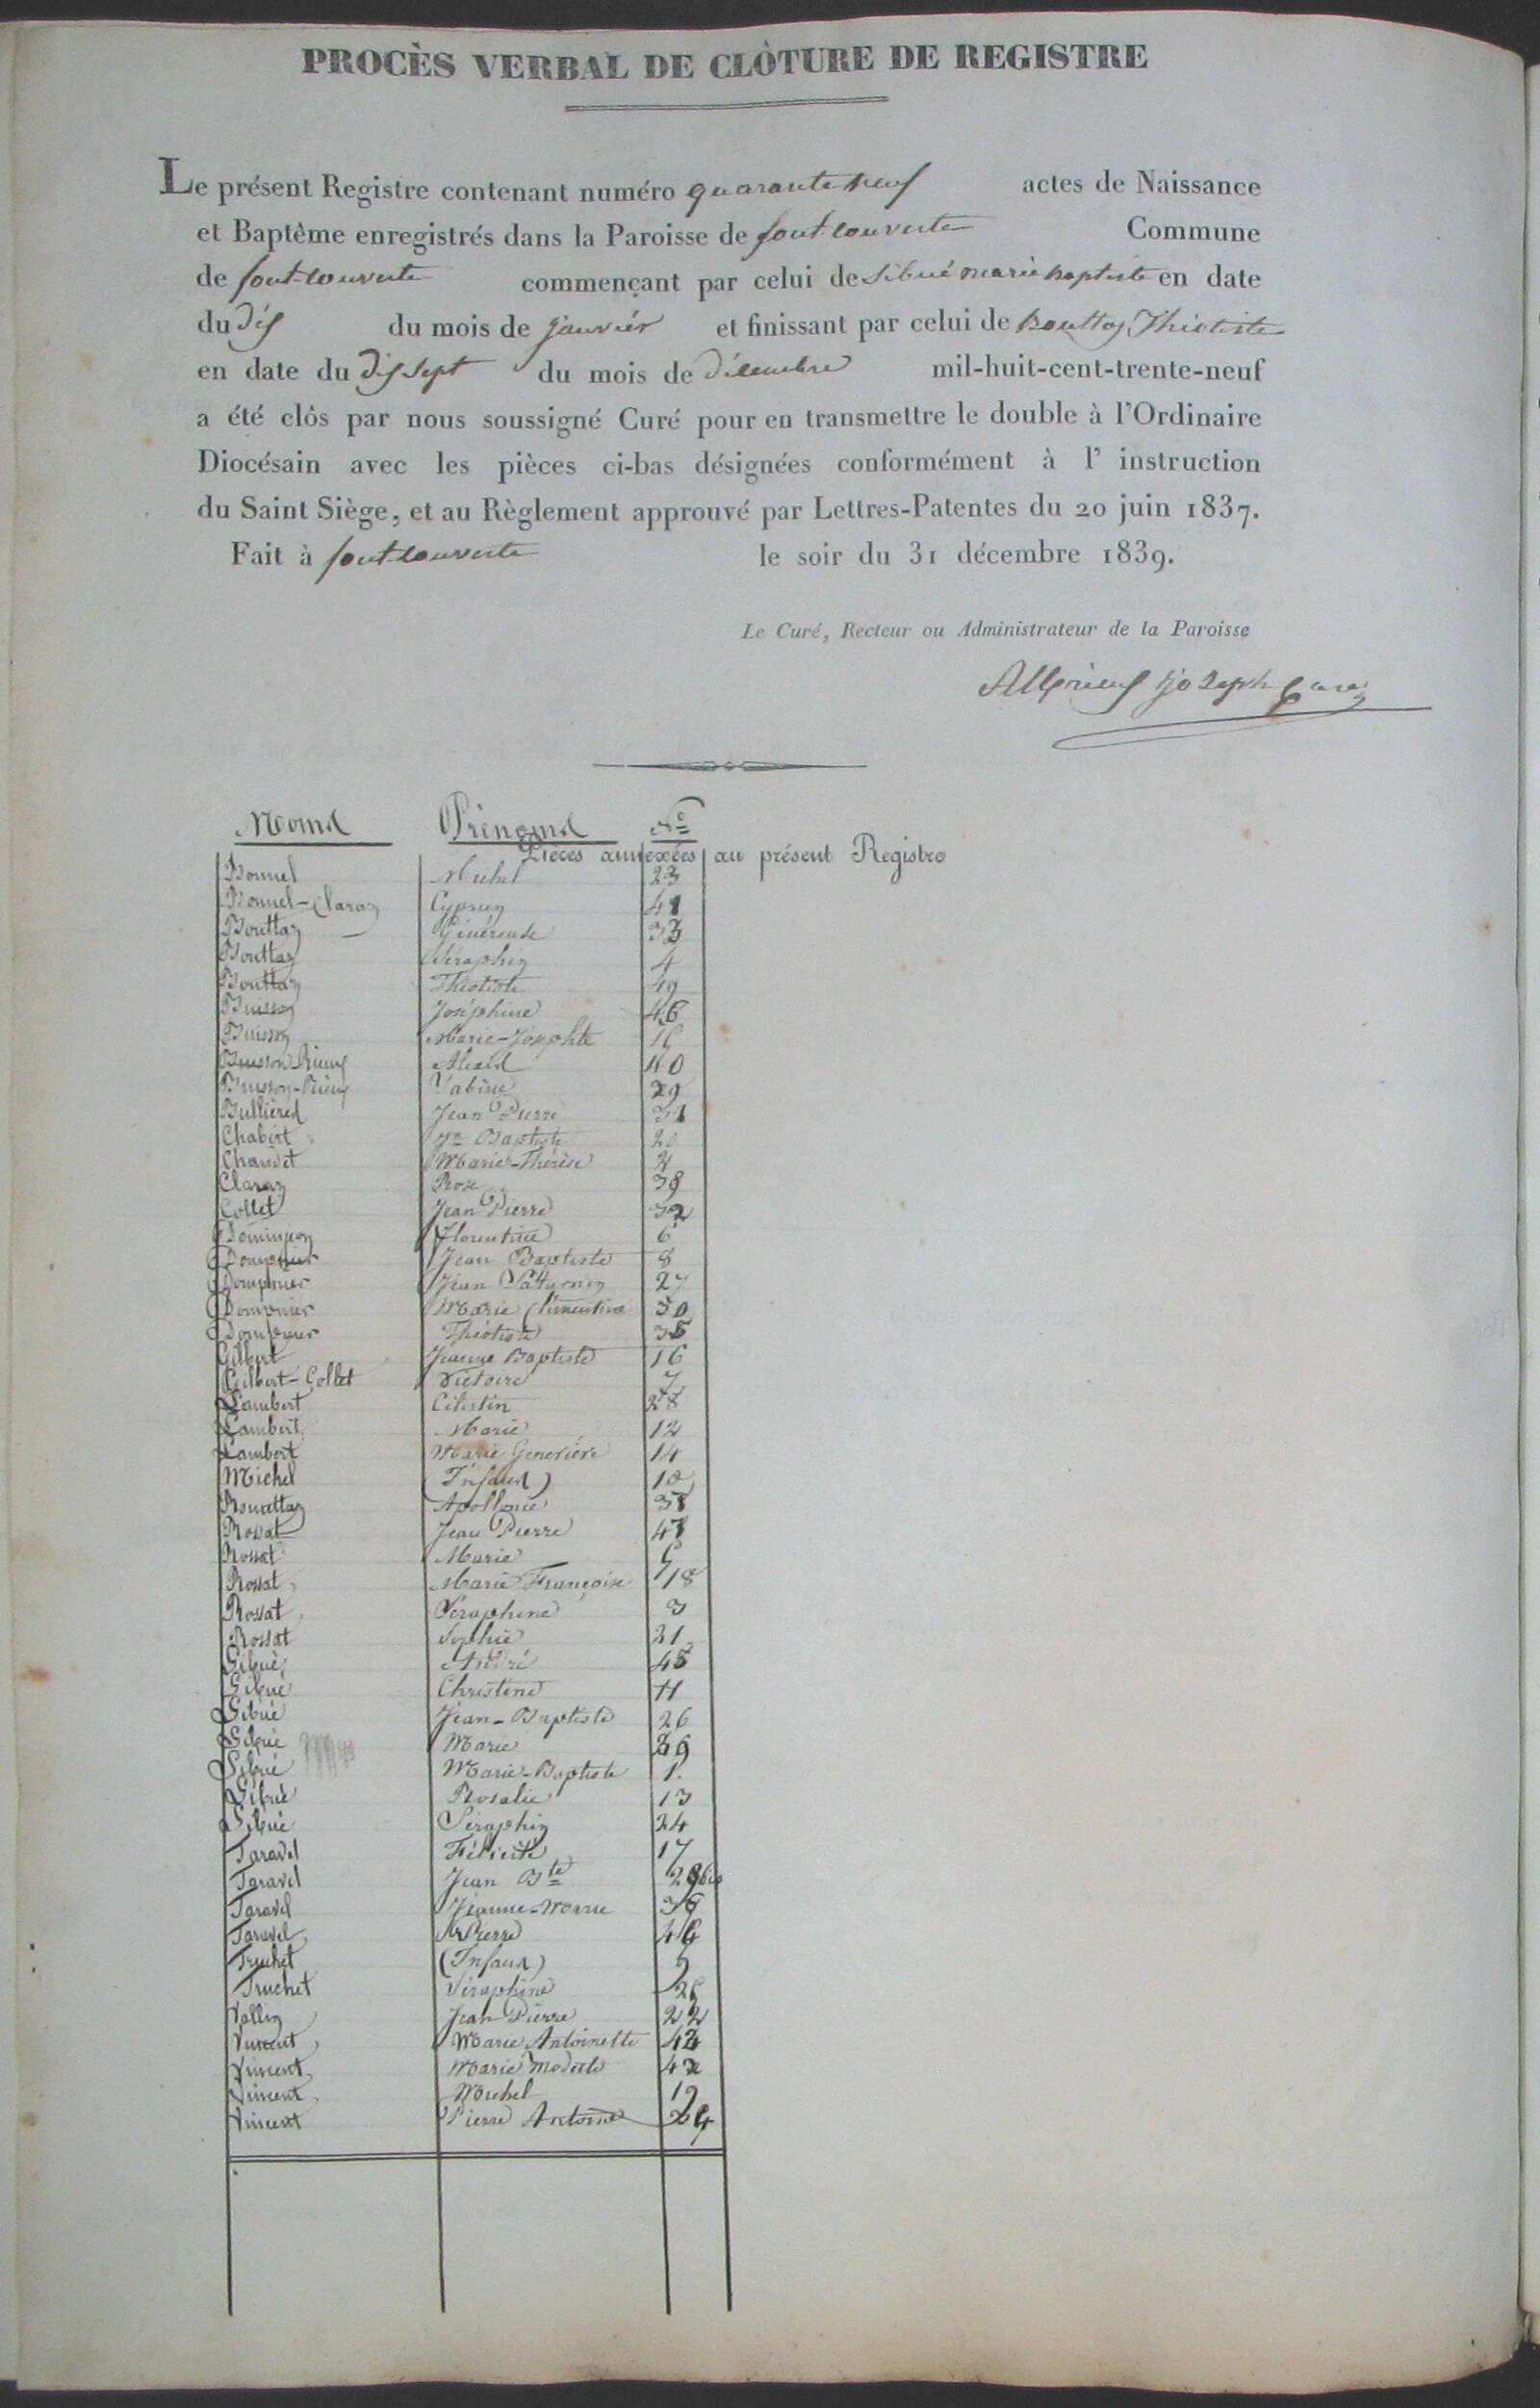 PROCÈS VERBAL DE CLÔTURE DE REGISTRE
Le présent Registre contenant numéro quarante neuf actes de Naissance
et Baptême enregistrés dans la Paroisse de font-couverte Commune
de font-couverte commençant par celui de Sibué marie baptiste en date
du dix du mois de janvier et finissant par celui de Bouttaz Thiotiste
en date du dix sept du mois de décembre mil-huit-cent-trente-neuf
a été clôs par nous soussigné Curé pour en transmettre le double à l'Ordinaire
Diocésain avec les pièces ci-bas désignées conformément à l' instruction
du Saint Siège, et au Règlement approuvé par Lettres-Patentes du 20 juin 1837.
Fait à font-couverte le soir du 31 décembre 1839.
Le Curé, Recteur ou Administrateur de la Paroisse
Joseph Curé
Noms Prénoms N°
Pièces annexées au présent Registre
Bonnel Michel 23
Bonnel-Claraz Cyprien 41
Bouttaz Généreuse 33
Bouttaz Séraphin 4
Bouttaz Théotiste 49
Buisson Joséphine 46
Buisson Marie-Josephte
Buisson-Rieux Alexis 40
Buisson-Rieux Sabine 29
Bullières Jean Pierre 31
Chabert Jn Baptiste
Chaudet Marie-Thérèse 2
Claraz Rose 38
Collet Jean Pierre 32
Dominjon Florentine 6
Dompnier Jean Baptiste 8
Dompnier Jean Satturnin 27
Dompnier Marie Clémentine 30
Dompnier Théotiste 35
Gilbert Jeanne Baptiste 16
Gilbert-Collet Victoire 7
Lambert Célestin 28
Lambert Marie 12
Lambert Marie Geneviève 14
Michel (Infans) 10
Rouattaz Apollonie
Rossat Jean Pierre 47
Rossat Marie
Rossat Marie Françoise 18
Rossat Séraphine 3
Rossat Sophie 21
Sibué André 45
Sibué Christine 11
Sibué Jean-Baptiste 26
Sibué Marie 39
Sibué Marie-Baptiste 1
Sibué Rosalie 13
Sibué Séraphin 24
Taravel Félicité 17
Taravel Jean Bte
Taravel Jeanne-Marie
Taravel Pierre
Truchet (Infans)
Truchet Séraphine
Vallin Jean Pierre 22
Vincent Marie Antoinette 43
Vincent Marie Modeste 42
Vincent Michel 19
Vincent Pierre Antoine